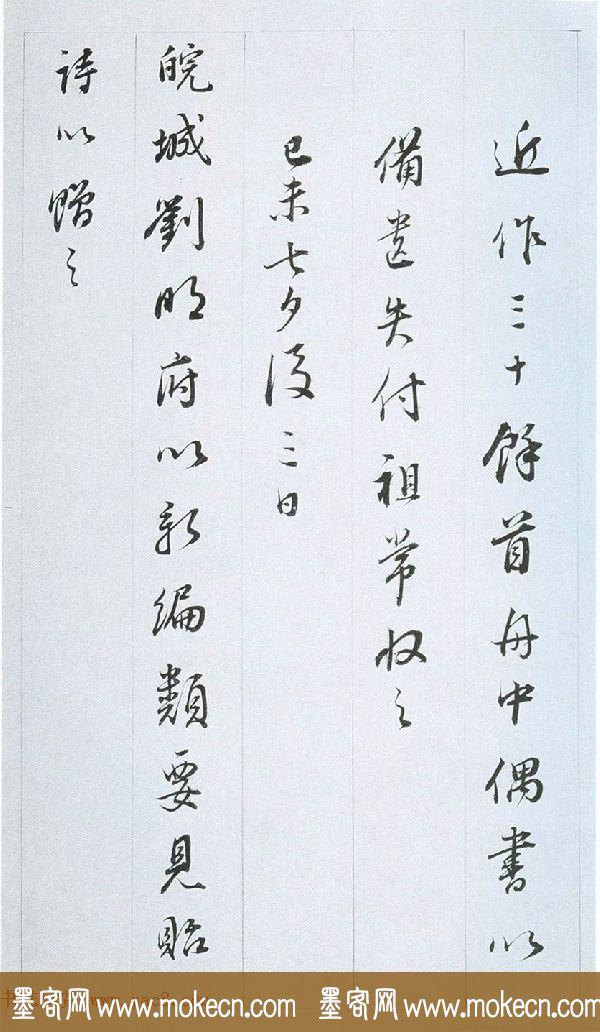 近作三十餘首舟中偶書以
備遺失付祖常收之
己未七夕後三日
皖城劉明府以新編類要見貽
詩以贈之
墨客网 www.mokecn.com 墨客网 www.mokecn.com